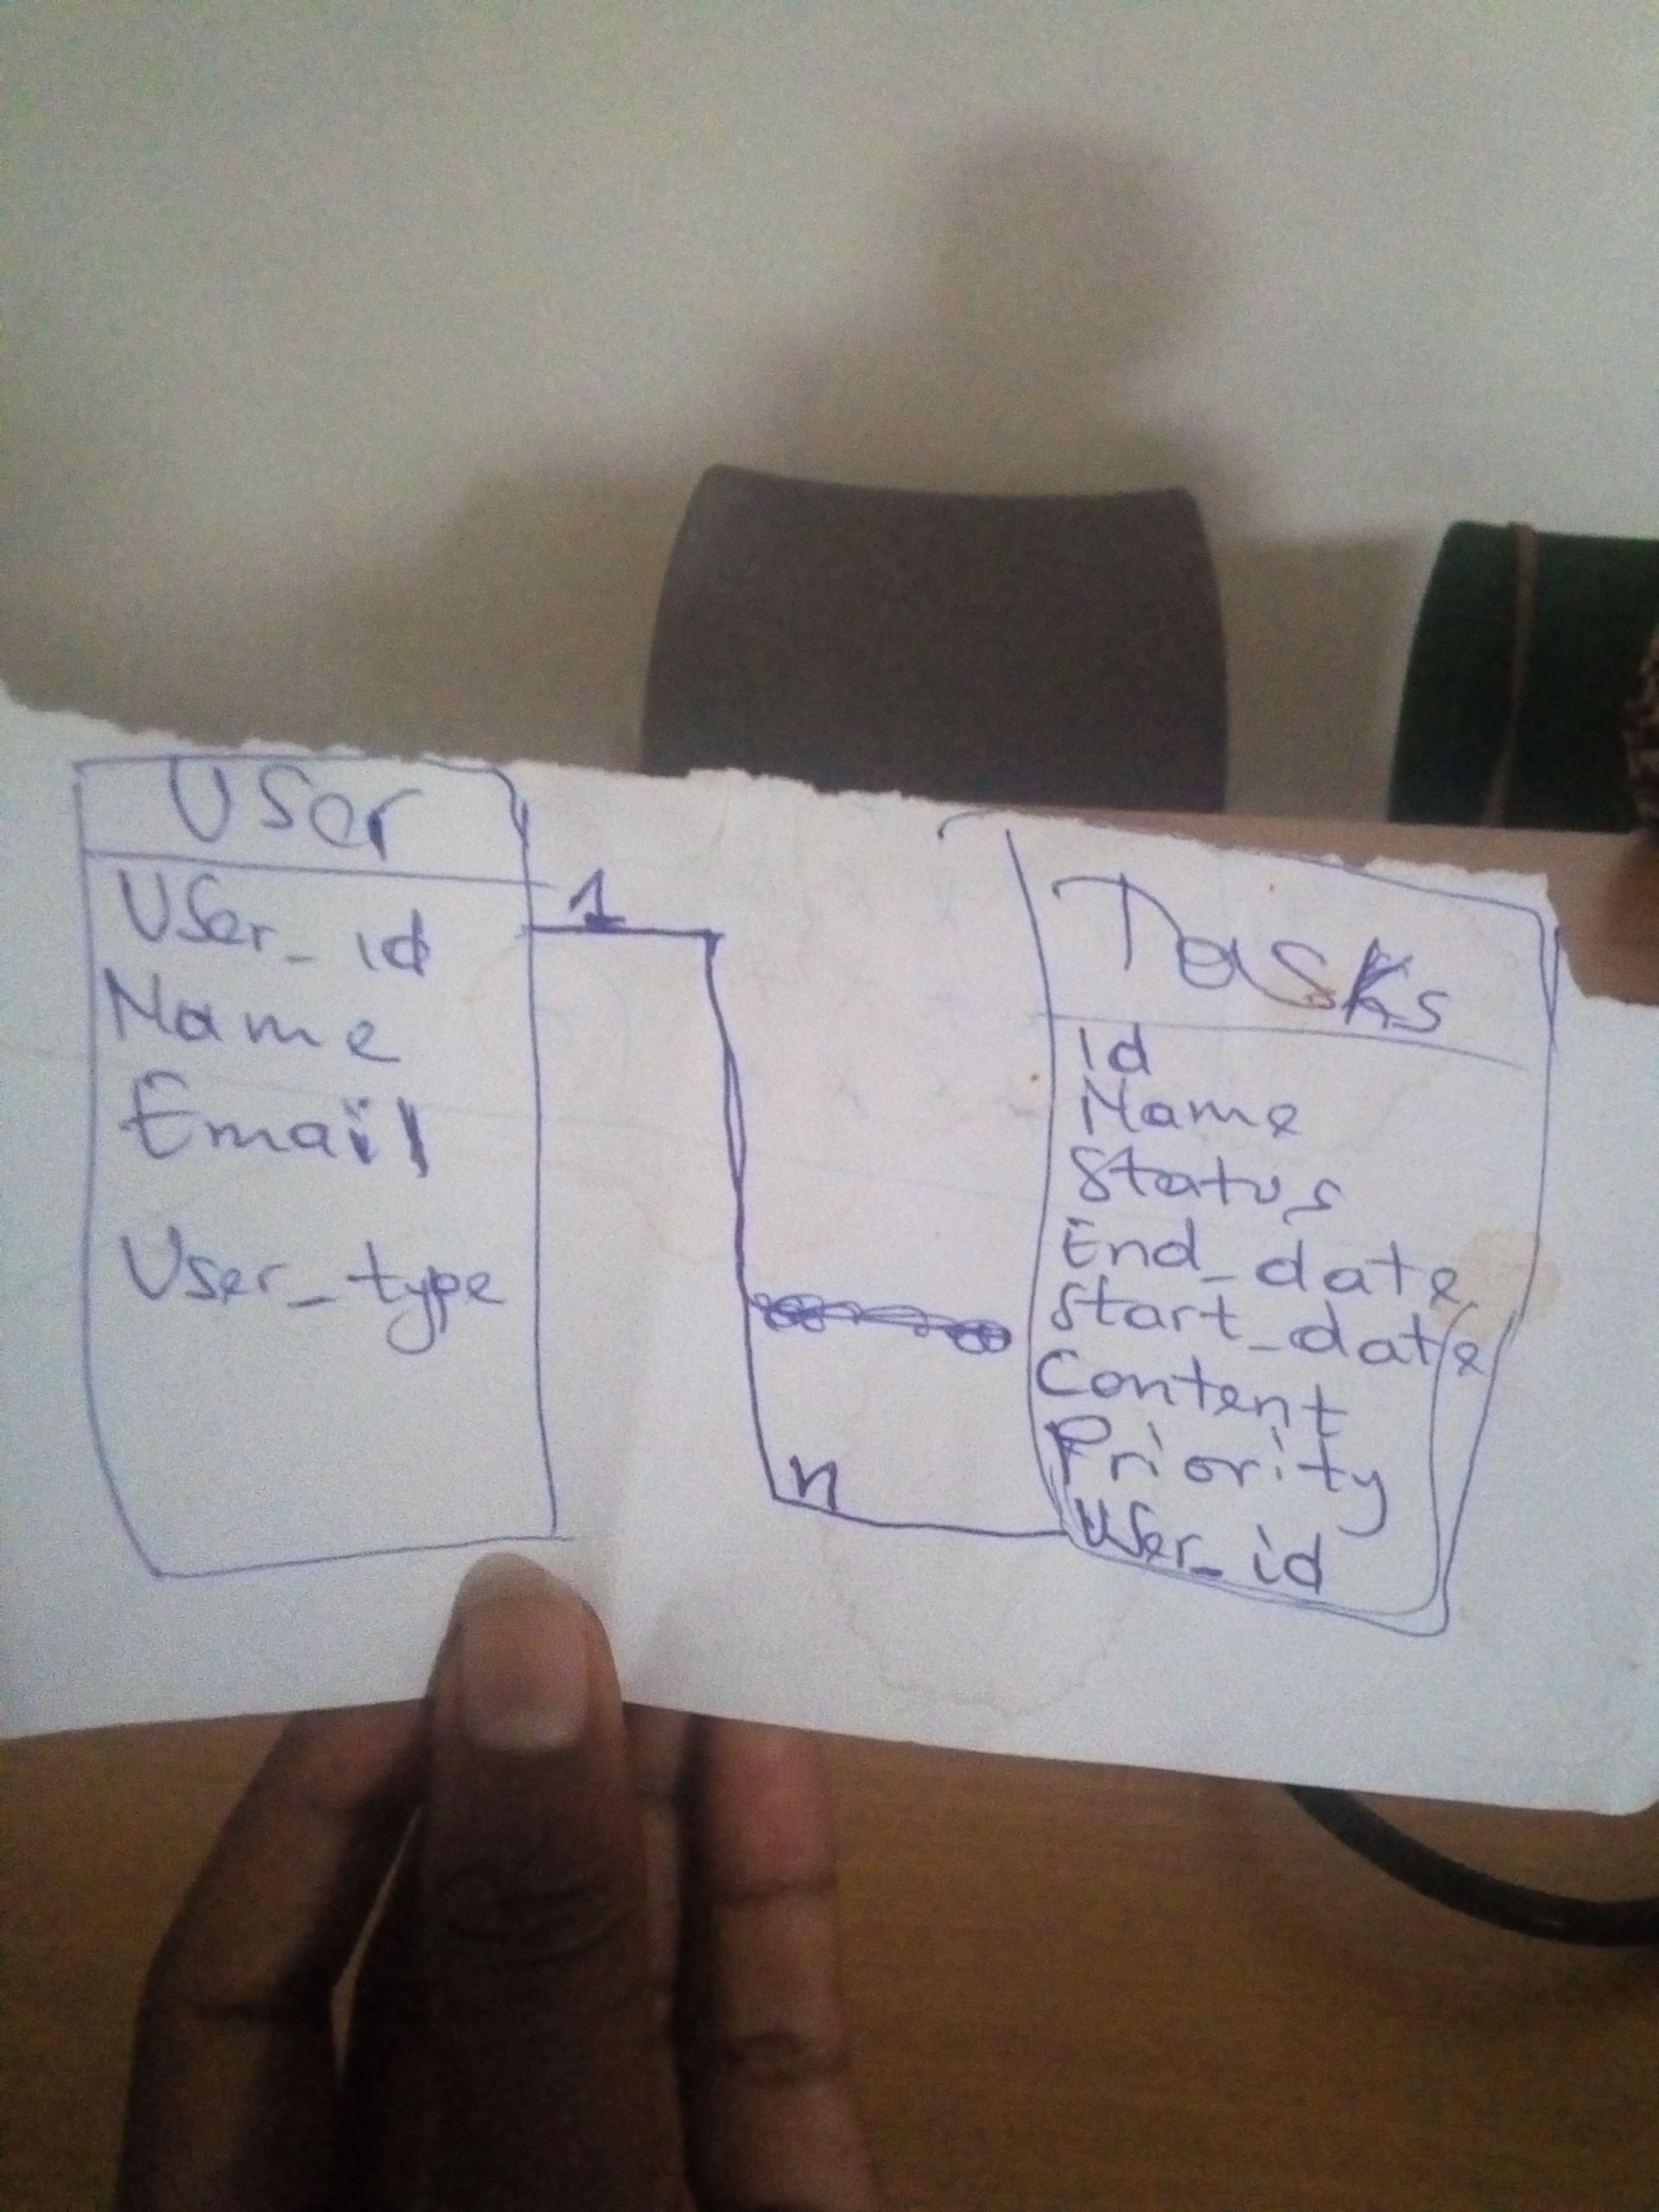 User
User_id
Name
Email
User_type
1
n
Tasks
id
Name
Status
End_date
Start_date
Content
Priority
User_id